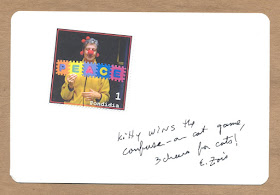 PEACE
1
Bondidia
kitty WINS the
confuse-a-cat game,
3 cheers for cats!